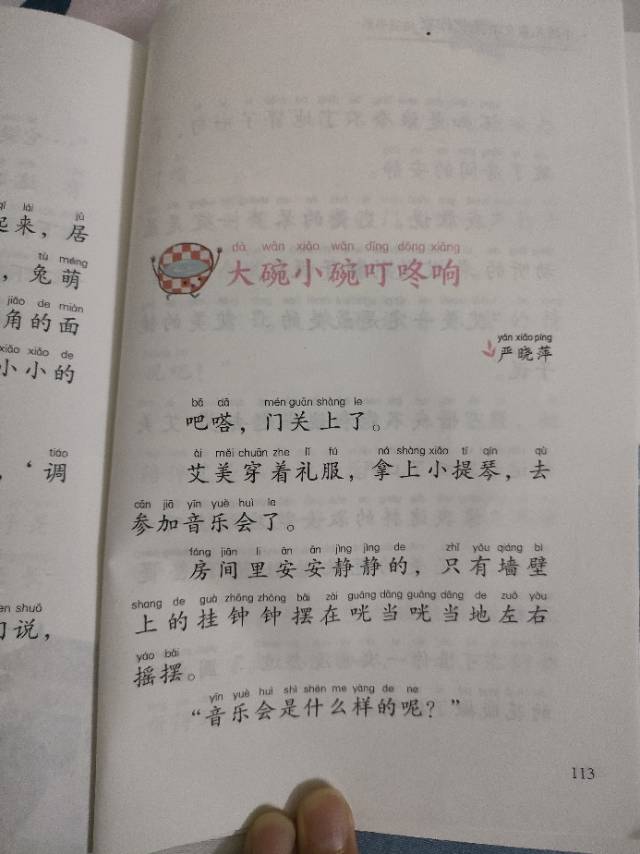 qǐ lái jū
起来，居
tù méng
，兔萌
jiǎo de miàn
角的面
xiǎo xiǎo de
小小的
tiáo
，‘调
men shuō
们说，
dà wǎn xiǎo wǎn dīng dōng xiǎng
大碗小碗叮咚响
yán xiǎo píng
严晓萍
bā dā mén guān shàng le
吧嗒，门关上了。
ài měi chuān zhe lǐ fú ná shàng xiǎo tí qín qù
艾美穿着礼服，拿上小提琴，去
cān jiā yīn yuè huì le
参加音乐会了。
fáng jiān li ān ān jìng jìng de zhǐ yǒu qiáng bì
房间里安安静静的，只有墙壁
shang de guà zhōng zhōng bǎi zài guāng dāng guāng dāng de zuǒ yòu
上的挂钟钟摆在咣当咣当地左右
yáo bǎi
摇摆。
yīn yuè huì shì shén me yàng de ne
“音乐会是什么样的呢？”
113